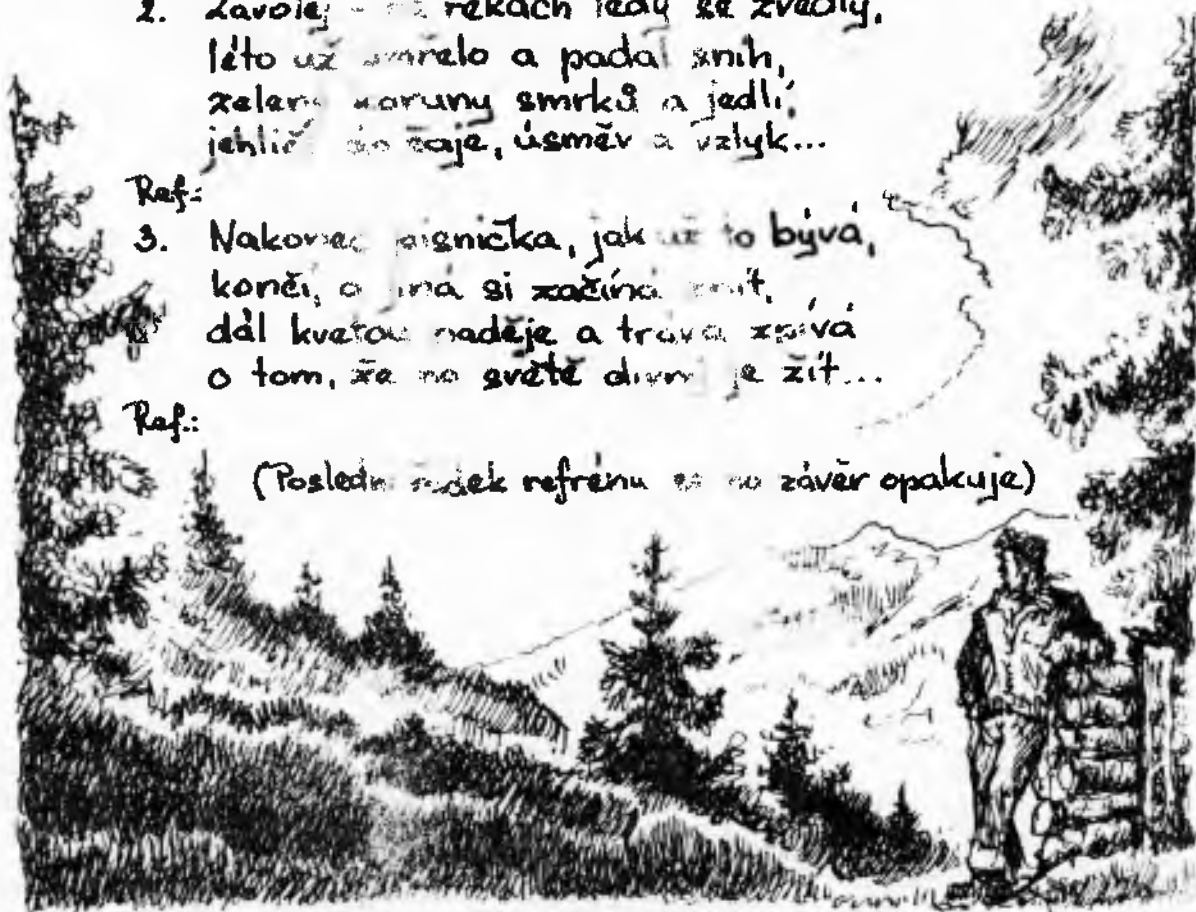 2. Zavolej - na řekách ledy se zvedly,
léto už umřelo a padal sníh,
zelený koruny smrků a jedlí,
jehličí do čaje, úsměv a vzlyk...
Ref.:
3. Nakonec písnička, jak už to bývá,
končí, a jiná si začíná znít,
dál kvetou naděje a tráva zpívá
o tom, že na světě divný je žít...
Ref.:
(Poslední řádek refrénu se na závěr opakuje)